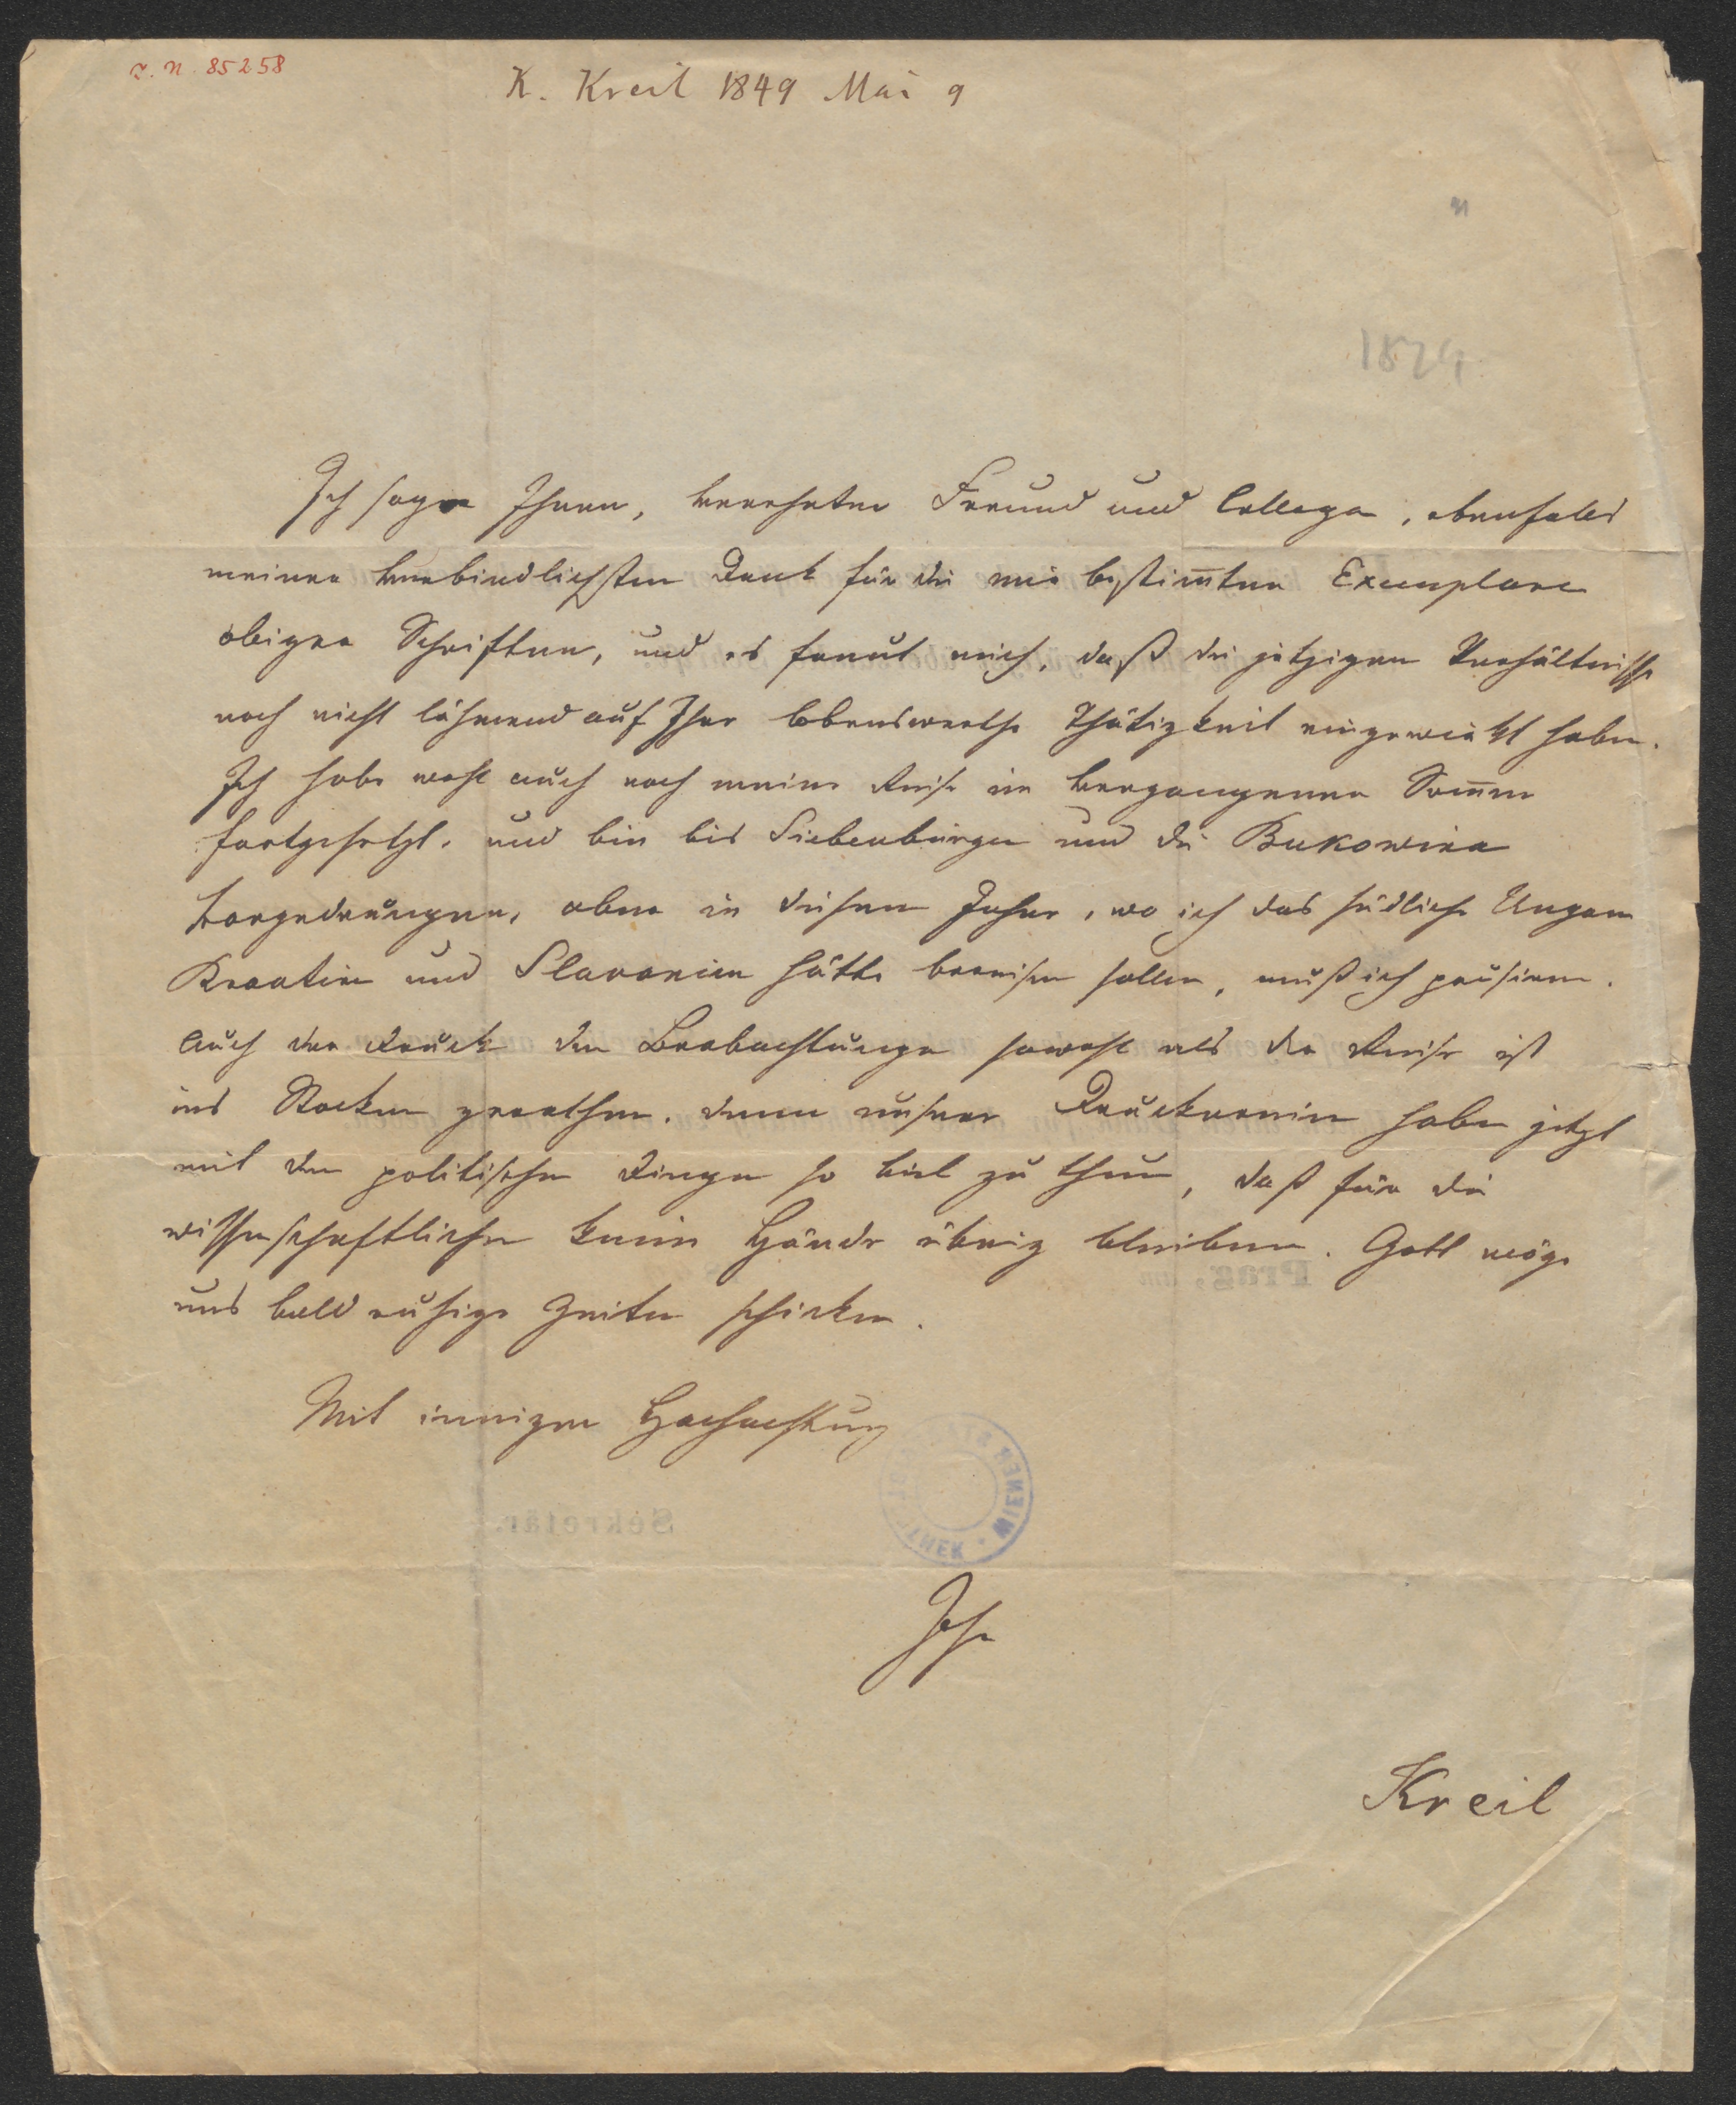 I. N. 85258
K. Kreil 1849 Mai 9
1824
Ich sage Ihnen, verehrter Freund und College, ebenfalls
meinen verbindlichsten Dank für die mir bestim̅ten Exemplare
obiger Schriften, und es freut mich, daß die jetzigen Verhältnisse
noch nicht lähmend auf Ihre lobenswerthe Thätigkeit eingewirkt haben.
Ich habe wohl auch noch meine Reise im vergangenen Som̅er
fortgesetzt, und bin bis Siebenbürgen und die Bukowina
vorgedrungen, aber in diesem Jahre, wo ich das südliche Ungarn
Kroatien und Slavonien hätte bereisen sollen, muß ich pausiren.
Auch der Druck der Beobachtungen sowohl als der Reise ist
ins Stocken gerathen, denn unsere Druckereien haben jetzt
mit den politischen Dingen so viel zu thun, daß für die
wissenschaftlichen keine Hände übrig bleiben. Gott möge
uns bald ruhige Zeiten schicken.
Mit inniger Hochachtung
WIENER
THEK
Sekretär.
Prag, am
Ihr
Kreil